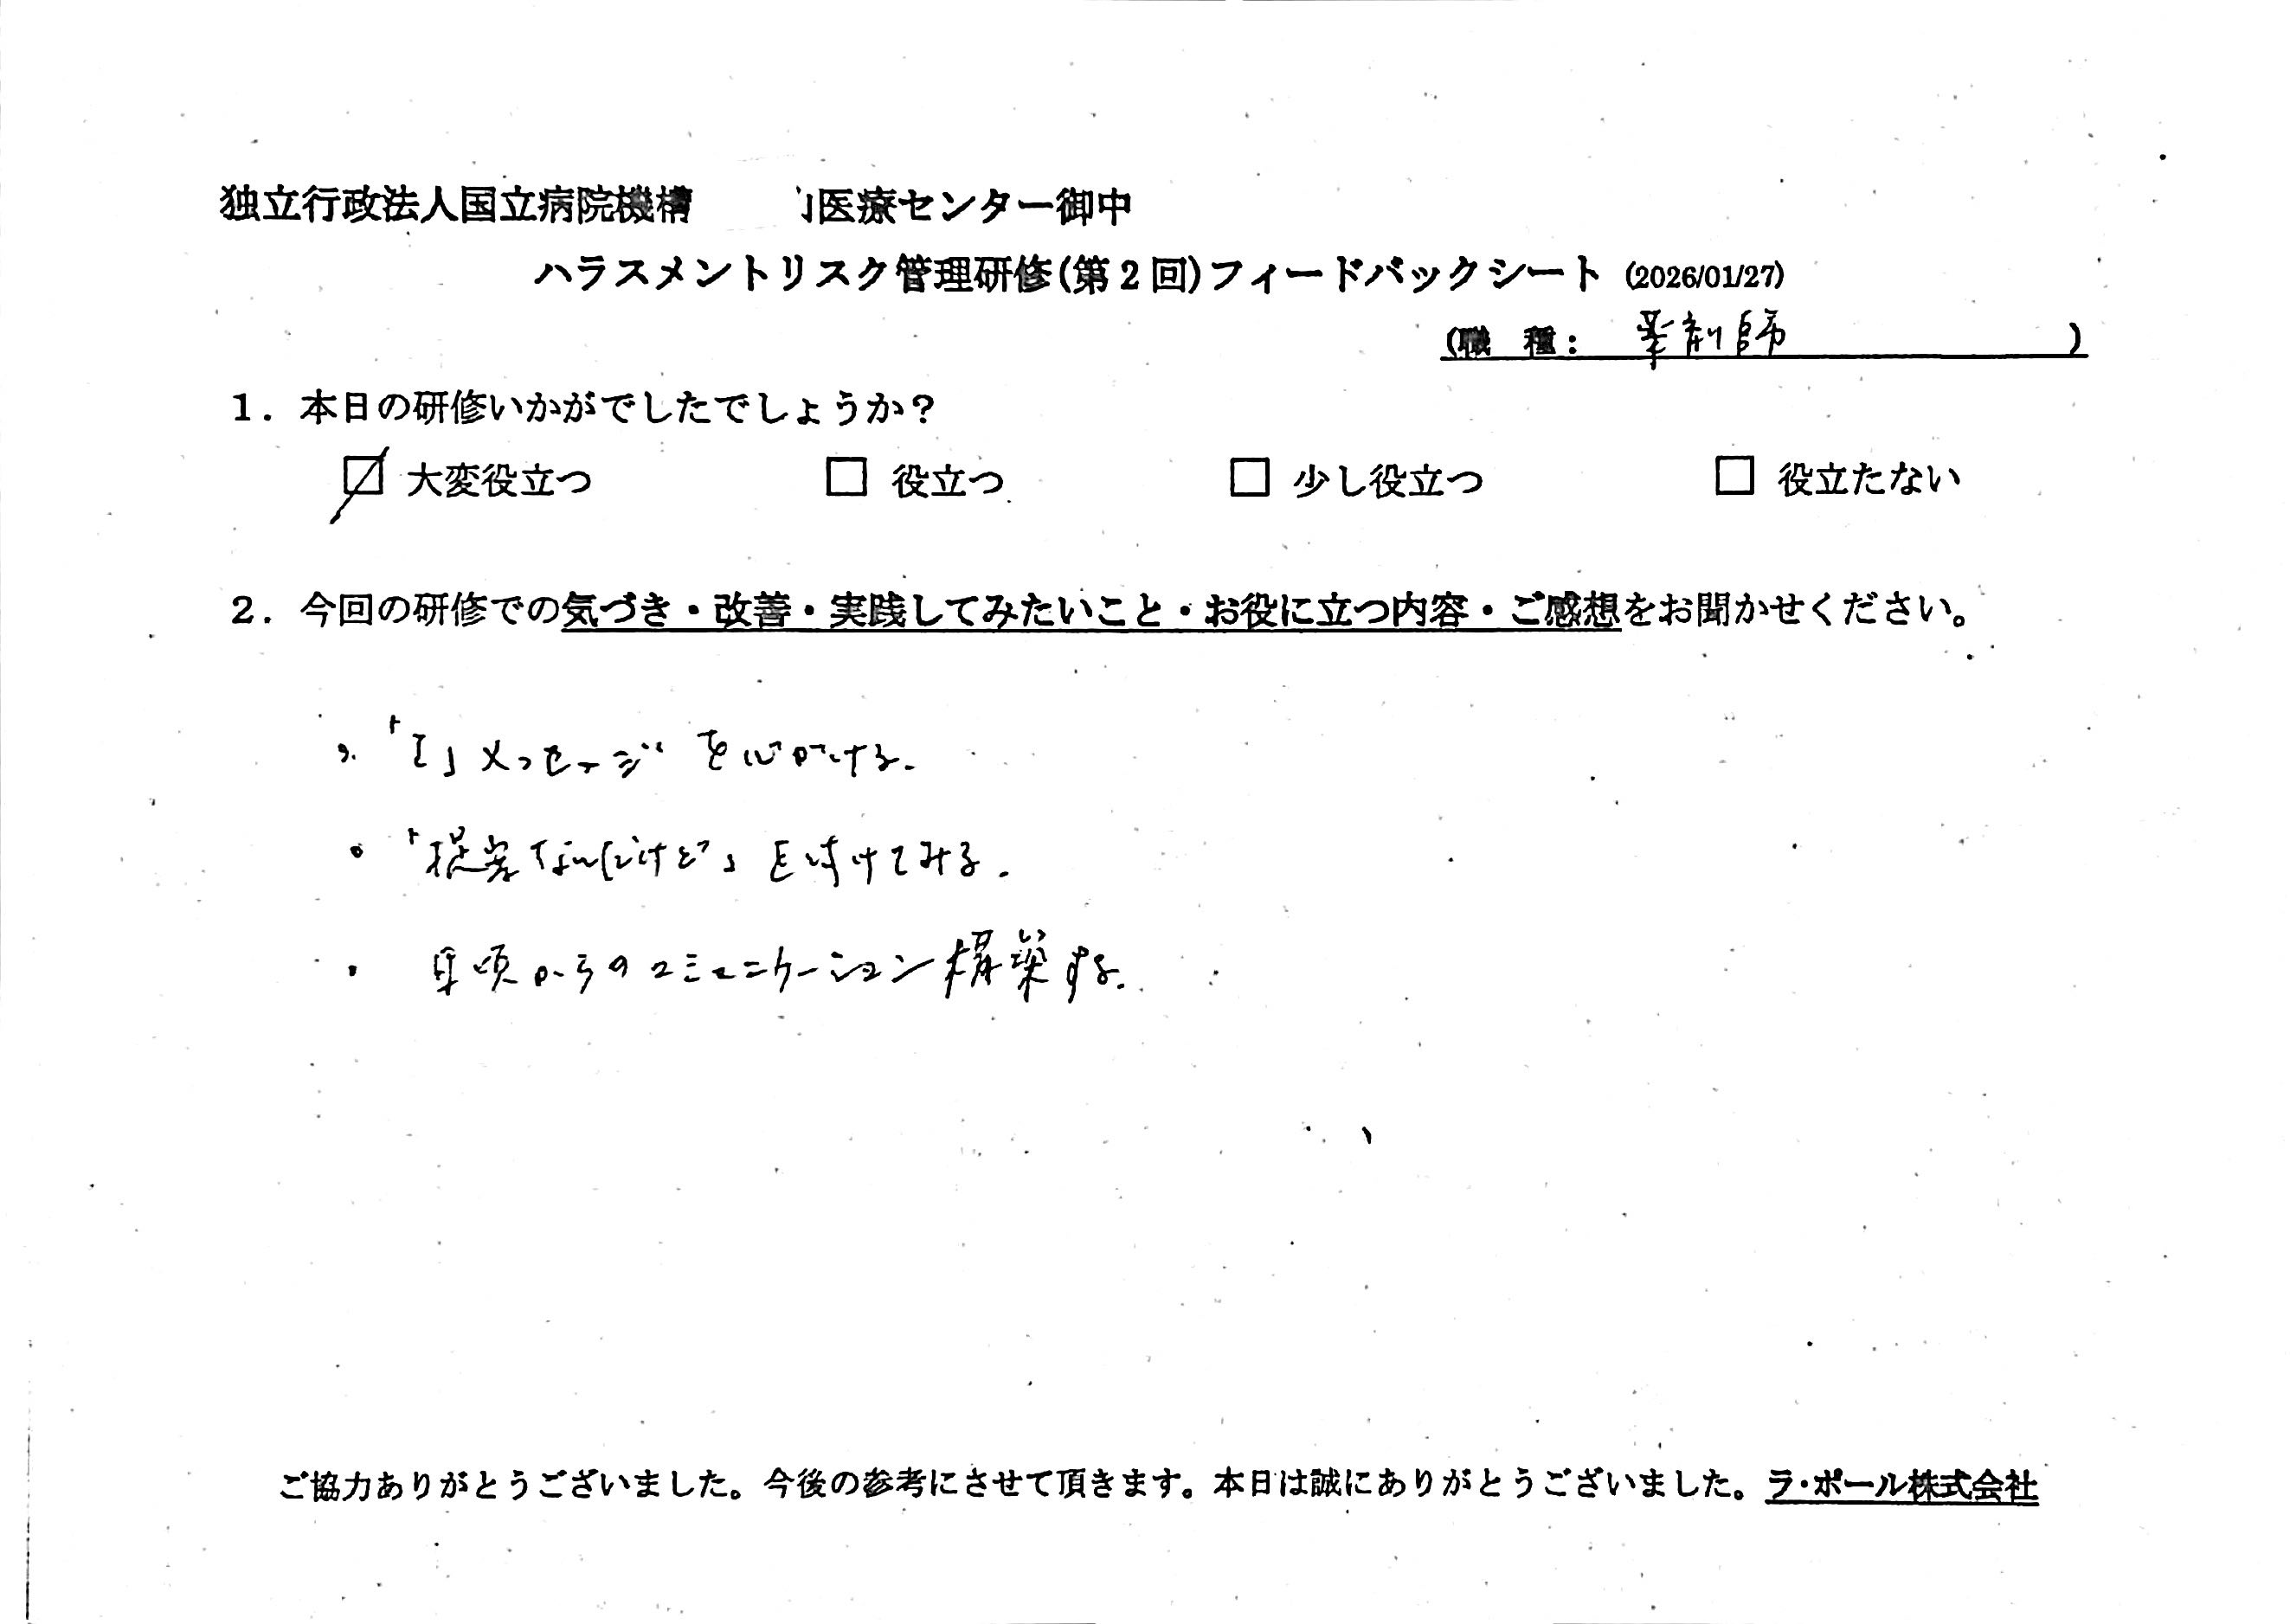 独立行政法人国立病院機構 医療センター御中
ハラスメントリスク管理研修(第2回)フィードバックシート (2026/01/27)
(職 種: 薬剤師 )
1. 本日の研修いかがでしたでしょうか?
☑ 大変役立つ □ 役立つ □ 少し役立つ □ 役立たない
2. 今回の研修での気づき・改善・実践してみたいこと・お役に立つ内容・ご感想をお聞かせください。
・「I」メッセージを心がける。
・「提案なんだけど」を付けてみる。
・日頃からのコミュニケーション構築する。
ご協力ありがとうございました。今後の参考にさせて頂きます。本日は誠にありがとうございました。ラ・ポール株式会社